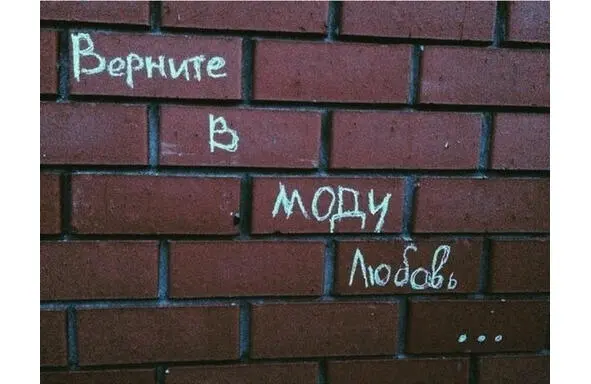 Верните
в
моду
любовь
...